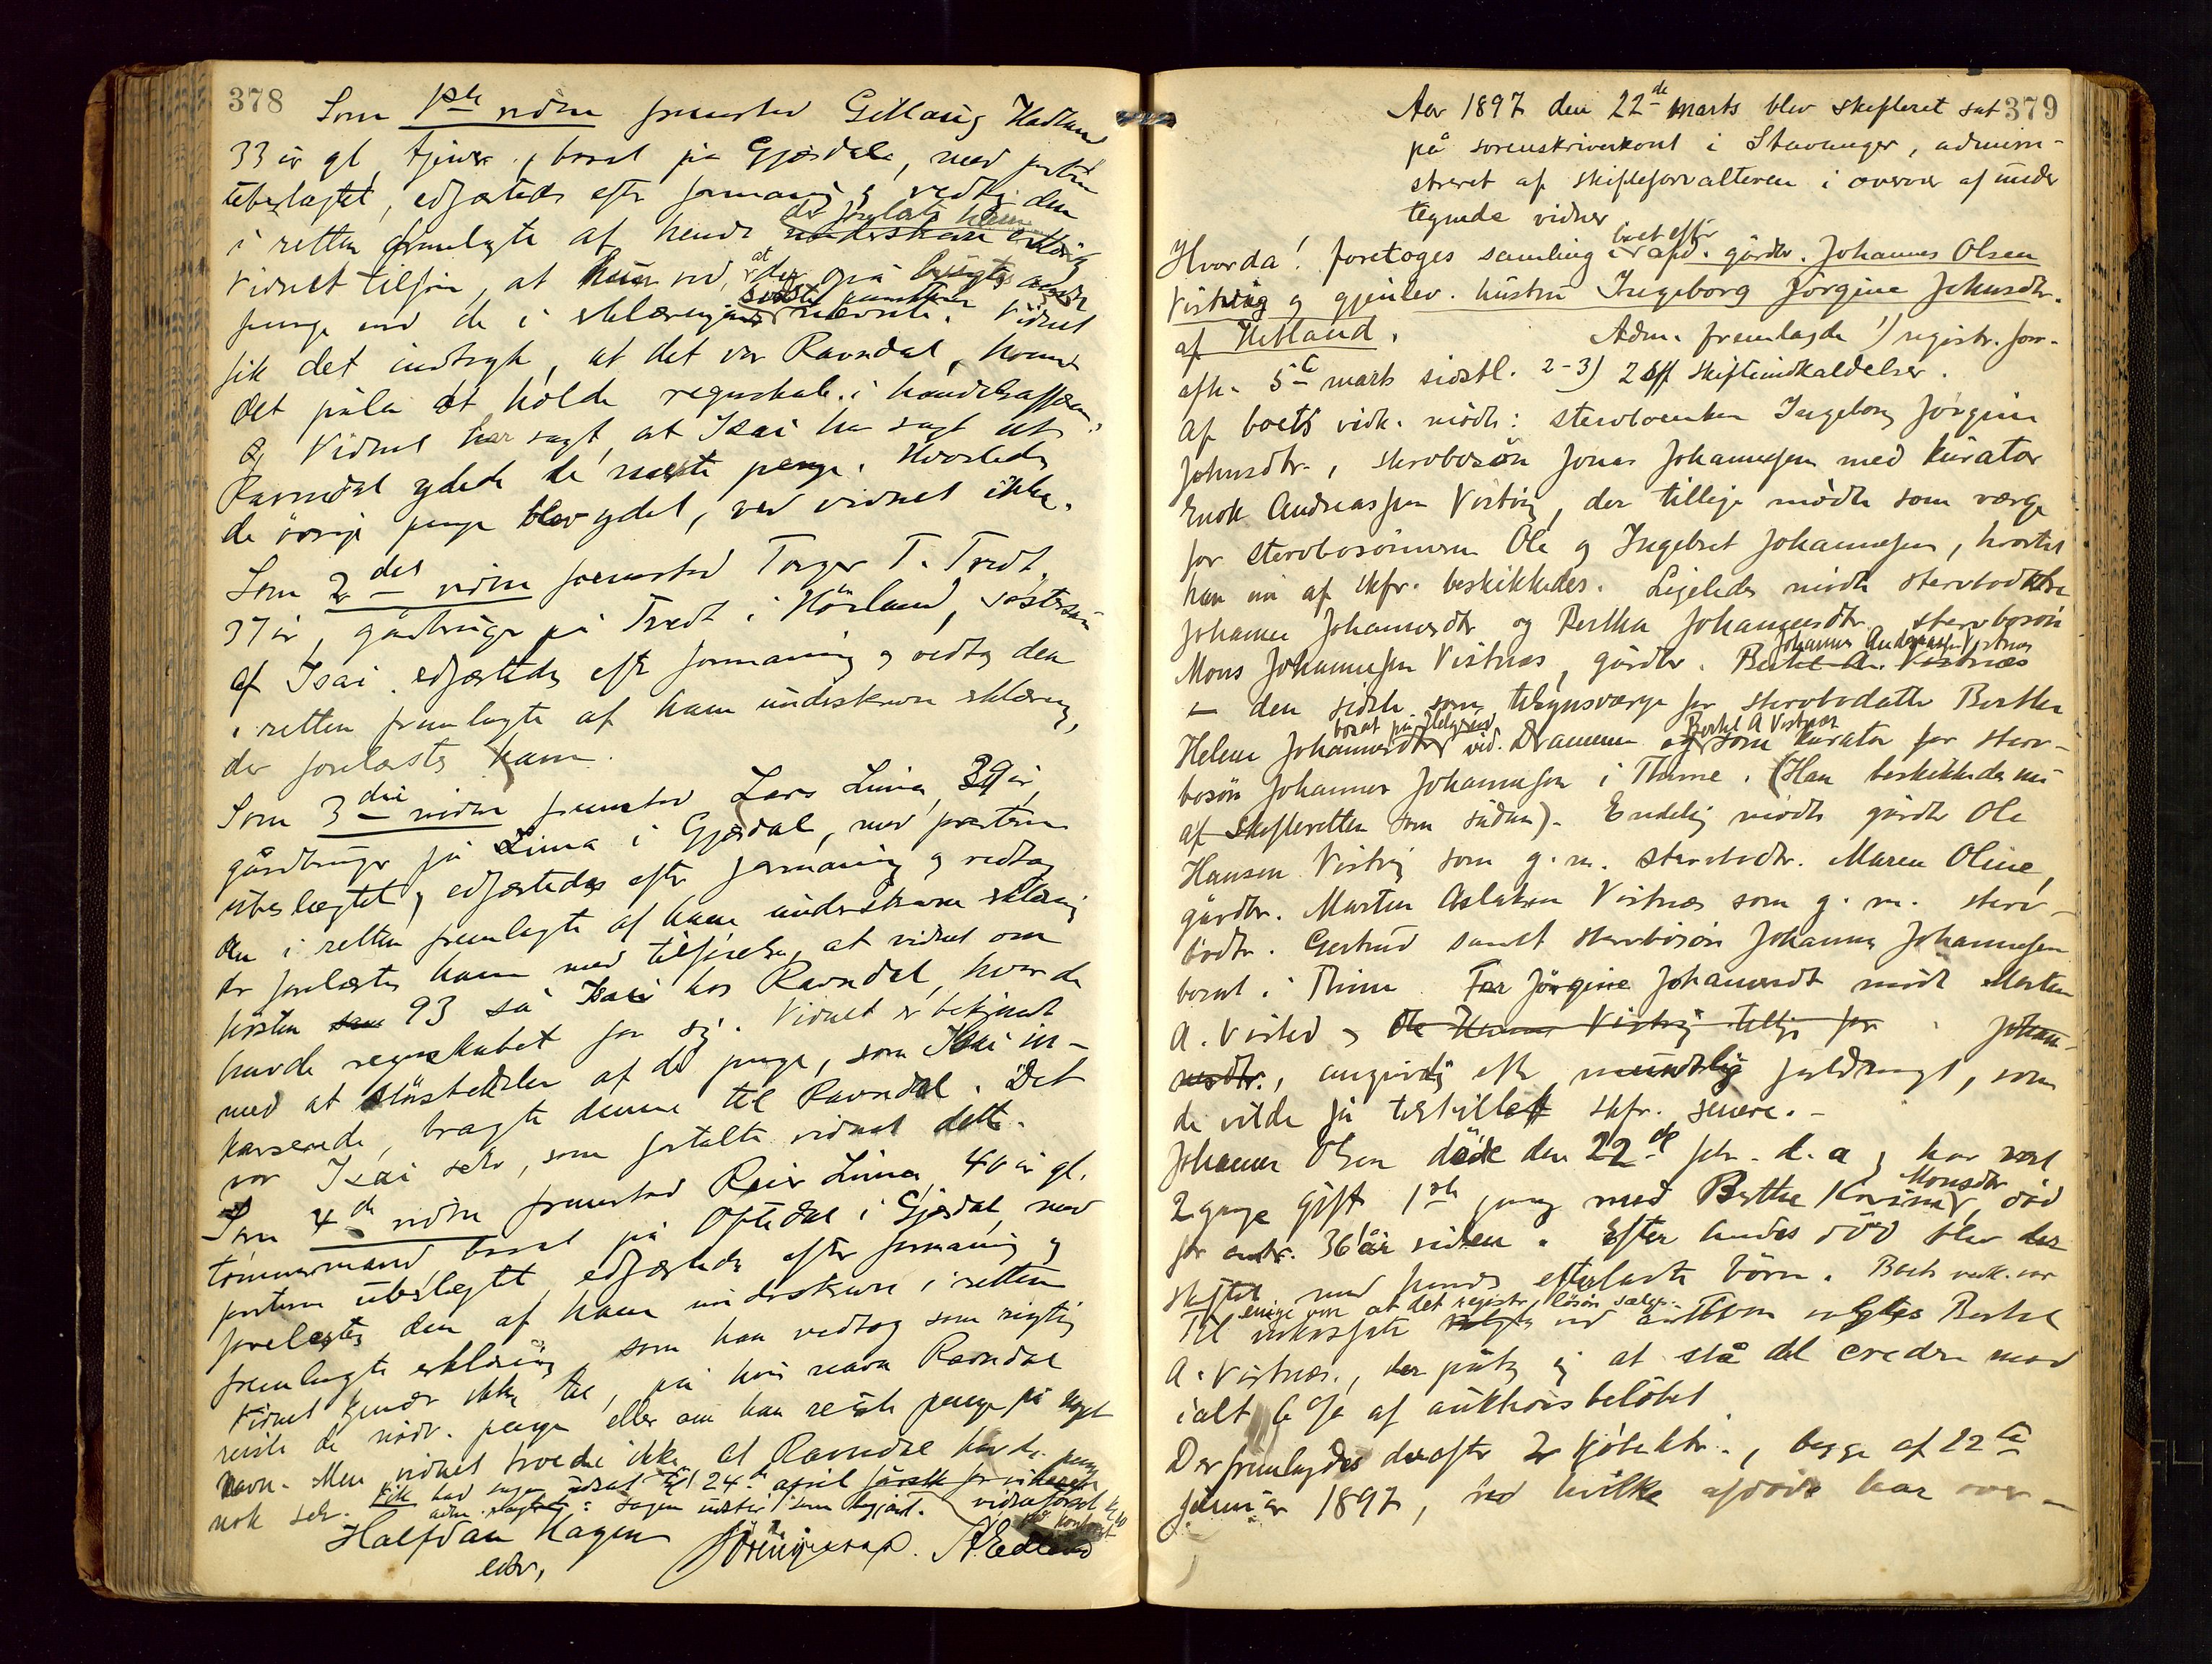 378
Som 1ste vidne fremstod Gitlaug Hadland
33 år gl, tjener, bosat på Gjæsdal, med parterne
ubeslægtet, edfæstedes efter formaning & vedtog den
i retten fremlagte af hende underskrevne erklæring
der forelæstes hende
Vidnet tilføier, at hun ved, at der også brugte andre
penge end de i erklæringens sidste punktum nævnte. Vidnet
fik det indtryk, at det var Ravndal, hvem
det pålå at holde regnskab i handelsaffæren.
Og Vidnet har sagt, at Isai har sagt at
Ravndal ydede de meste penge. Hvorledes
de øvrige penge blev ydet, ved vidnet ikke.
Som 2det vidne fremstod Torger T. Tvedt,
37 år, gårdbruger på Tvedt i Høiland, søstersøn
af Isai. edfæstedes efter formaning og vedtog den
i retten fremlagte af ham underskrevne erklæring,
der forelæstes ham.
Som 3die vidne fremstod Lars Lima, 39 år,
gårdbruger på Lima i Gjæsdal, med parterne
ubeslægtet, edfæstedes efter formaning og vedtog
den i retten fremlagte af ham underskrevne erklæring
der forelæstes ham med tilføielse, at vidnet om
høsten 93 så Isai hos Ravndal, hvor de
havde regnskabet for sig. Vidnet er bekjendt
med at størstedelen af de penge, som Isai in-
kasserede, bragte denne til Ravndal. Det
var Isai selv, som fortalte vidnet dette.
Som 4de vidne fremstod Reier Lima, 40 år gl.
tømmermand, bosat på Oftedal i Gjæsdal, med
parterne ubeslægtet, edfæstedes efter formaning og
forelæstes den af ham underskrevne i retten
fremlagte erklæring, som han vedtog som rigtig
Vidnet kjender ikke til, på hvis navn Ravndal
reiste de nødv. penge eller om han reiste penge på noget
navn. Men vidnet troede ikke, at Ravndal havde penge
nok selv. Eik bad sagen udsat til 24de april
adm. sagen udsat som begjært.
Halfdan Hagen
edsv.
A Edland
379
Aar 1897 den 22de marts blev skifteret sat
på sorenskriverkont i Stavanger, admini-
streret af skifteforvalteren i overvær af under
tegnede vidner
Hvorda! foretoges samling i boet efter afd. gårdbr. Johannes Olsen
Vistnæs og gjenlev. hustru Ingeborg Jörgine Johnsdtr.
af Hetland. Adm. fremlagde 1) registr. forr.
afh. 5te marts sidstl. 2-3) 2 skifteindkaldelser.
Af boets vedk. mødte: stervboenken Ingeborg Jörgine
Johnsdtr., stervbosøn Jonas Johannesen med kurator
Enok Andreassen Vistnæs, der tillige mødte som værge
for stervbosønnerne Ole og Ingebret Johannesen, hvortil
han nu af skfr. beskikkedes. Ligeledes mødte stervbodøttre
Johanne Johannesdtr og Bertha Johannesdtr. stervbosøn
Mons Johannesen Vistnæs, gårdbr. Bertel A. Vistnæs
Johannes Andreassen Vistnæs
– den sidste som tilsynsværge for stervbodatter Berthe
Helene Johannesdtr bosat på Helgerud ved Drammen og Bertel A Vistnæs som kurator for sterv-
bosøn Johannes Johannesen i Thime. (Han beskikkedes nu
af Skifteretten som sådan). Endelig mødte gårdbr Ole
Hansen Vistnæs som g. m. stervbodtr. Maren Oline,
gårdbr. Morten Aslaksen Vistnæs som g. m. sterv-
bodtr. Gertrud samt stervbosøn Johannes Johannesen
boende i Thime. For Jørgine Johannesdt mødte Morten
A. Visted og Ole Hansen Vistnæs tillige for Johan-
nesdtr., angivelig efter mundtlig fuldmagt, som
de vilde få tilstillet skfr. senere. –
Johannes Olsen døde den 22de febr. d. a og har været
2 gange gift 1ste gang med Berthe Karine Monsdtr, død
for omtr. 36 år siden. Efter hendes død blev der
skiftet med hendes efterladte børn. Boets vedk. var
enige om at det registr. løsøre sælges.
Til inkassator ved auktion valgtes Bertel
A. Vistnæs, der påtog sig at stå del credere mod
ialt 6 % af auktionsbeløbet
Der fremlagdes derefter 2 kjøbektr., begge af 22de
januar 1897, ved hvilke afdøde har over-